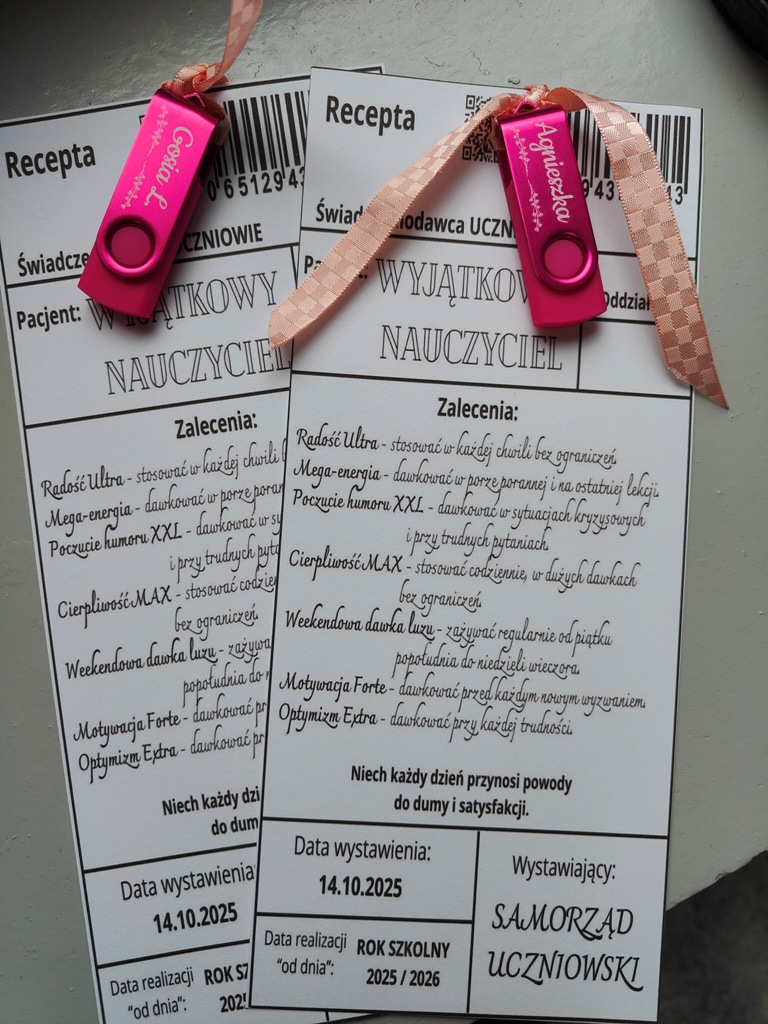 Recepta
Gosia L.
0 65129 43
Świadcze
UCZNIOWIE
Pacjent:
NAUCZYCIEL
Zalecenia:
Radość Ultra - stosować w każdej chwili
Mega-energia - dawkować w porze
Poczucie humoru XXL - dawkować w
i przy trudnych
Cierpliwość MAX - stosować
bez ograniczeń.
Weekendowa dawka luzu -
popołudnia do
Motywacja Forte - dawkować
Optymizm Extra - dawkować
Niech każdy
do
Data wystawienia:
14.10.2025
Data realizacji
"od dnia":
ROK
Recepta
Agnieszka
13
UCZN
WYJĄTKOW
NAUCZYCIEL
Oddział
Zalecenia:
Radość Ultra - stosować w każdej chwili bez ograniczeń.
Mega-energia - dawkować w porze porannej i na ostatniej lekcji.
Poczucie humoru XXL - dawkować w sytuacjach kryzysowych
i przy trudnych pytaniach.
Cierpliwość MAX - stosować codziennie, w dużych dawkach
bez ograniczeń.
Weekendowa dawka luzu - zażywać regularnie od piątku
popołudnia do niedzieli wieczora.
Motywacja Forte - dawkować przed każdym nowym wyzwaniem.
Optymizm Extra - dawkować przy każdej trudności.
Niech każdy dzień przynosi powody
do dumy i satysfakcji.
Data wystawienia:
14.10.2025
Data realizacji
"od dnia":
ROK SZKOLNY
2025 / 2026
Wystawiający:
SAMORZĄD
UCZNIOWSKI